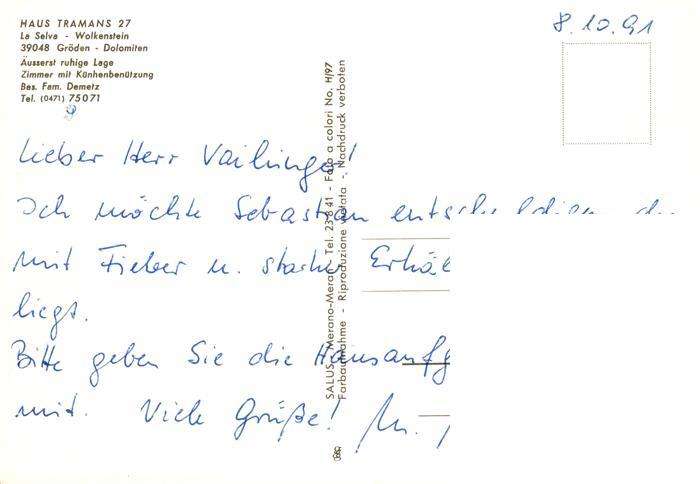 HAUS TRAMANS 27
La Selva - Wolkenstein
39048 Gröden - Dolomiten
Äusserst ruhige Lage
Zimmer mit Künhenbenützung
Bes. Fam. Demetz
Tel. (0471) 75071
8.10.91
SALUS - Merano-Meran - Tel. 23-8-41 - Foto a colori No. H/97
Farbaufnahme - Riproduzione vietata - Nachdruck verboten
Lieber Herr Vailinger!
Ich möchte Sebastian
mit Fieber u. starker
liegt.
Bitte geben Sie die
mit. Viele Grüße!